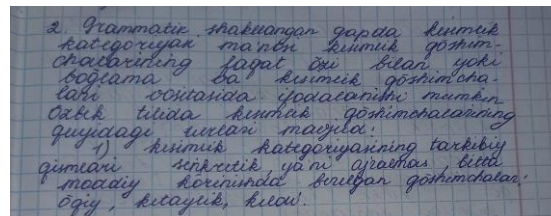 2. Grammatik shakllangan gapda kesimlik
kategoriyasi ma'nosi kesimlik qoshim-
chalarining faqat özi bilan yoki
boglama va kesimlik qöshimcha-
lari vositasida ifodalanishi mumkin
özbek tilida kesimlik qöshimchalarining
quyidagi turlari mavjud:
1) kesimlik kategoriyasining tarkibiy
qismlari sinkretik, ya'ni ajralmas bitta
moddiy körinishda berilgan qöshimchalar:
öqiy, ketaylik, keldi.